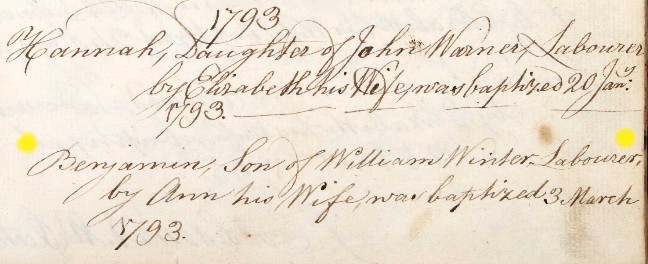 1793
Hannah, Daughter of John Warner, Labourer
by Elizabeth his Wife, was baptized 20 Jany.
1793.
Benjamin, Son of William Winter, Labourer,
by Ann his Wife, was baptized 3 March
1793.